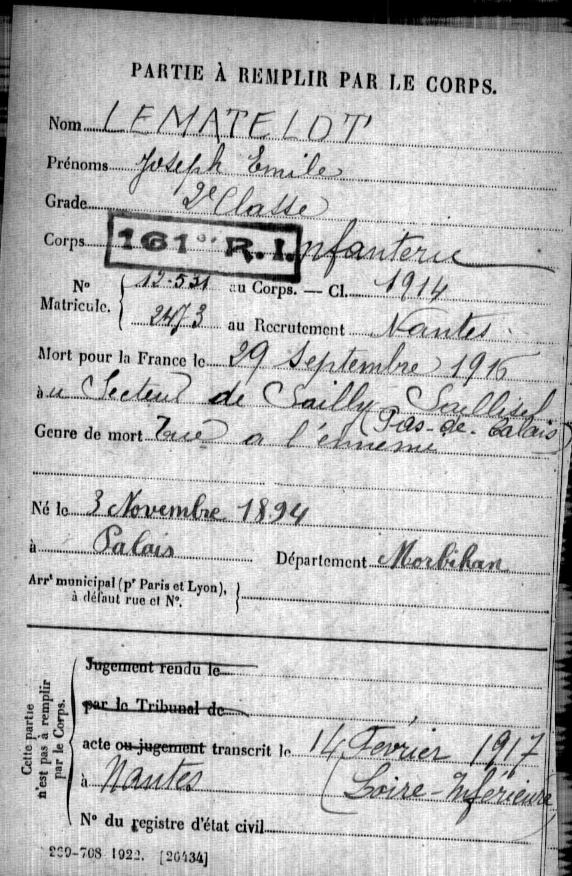 PARTIE À REMPLIR PAR LE CORPS.
Nom LEMATELOT
Prénoms Joseph Emile
Grade 2e Classe
Corps 161e R.I. nfanterie
N° Matricule. 12.531 au Corps. — Cl. 1914
2473 au Recrutement Nantes
Mort pour la France le 29 Septembre 1916
à u Secteur de Sailly Saillisel
(Pas-de-Calais)
Genre de mort Tué a l'ennemi
Né le 3 Novembre 1894
à Palais Département Morbihan
Arrt municipal (pr Paris et Lyon),
à défaut rue et N°.
Cette partie
n'est pas à remplir
par le Corps.
Jugement rendu le
par le Tribunal de
acte ou jugement transcrit le 14 Fevrier 1917
à Nantes (Loire-Inférieure)
N° du registre d'état civil
269-708 1922. [26434]